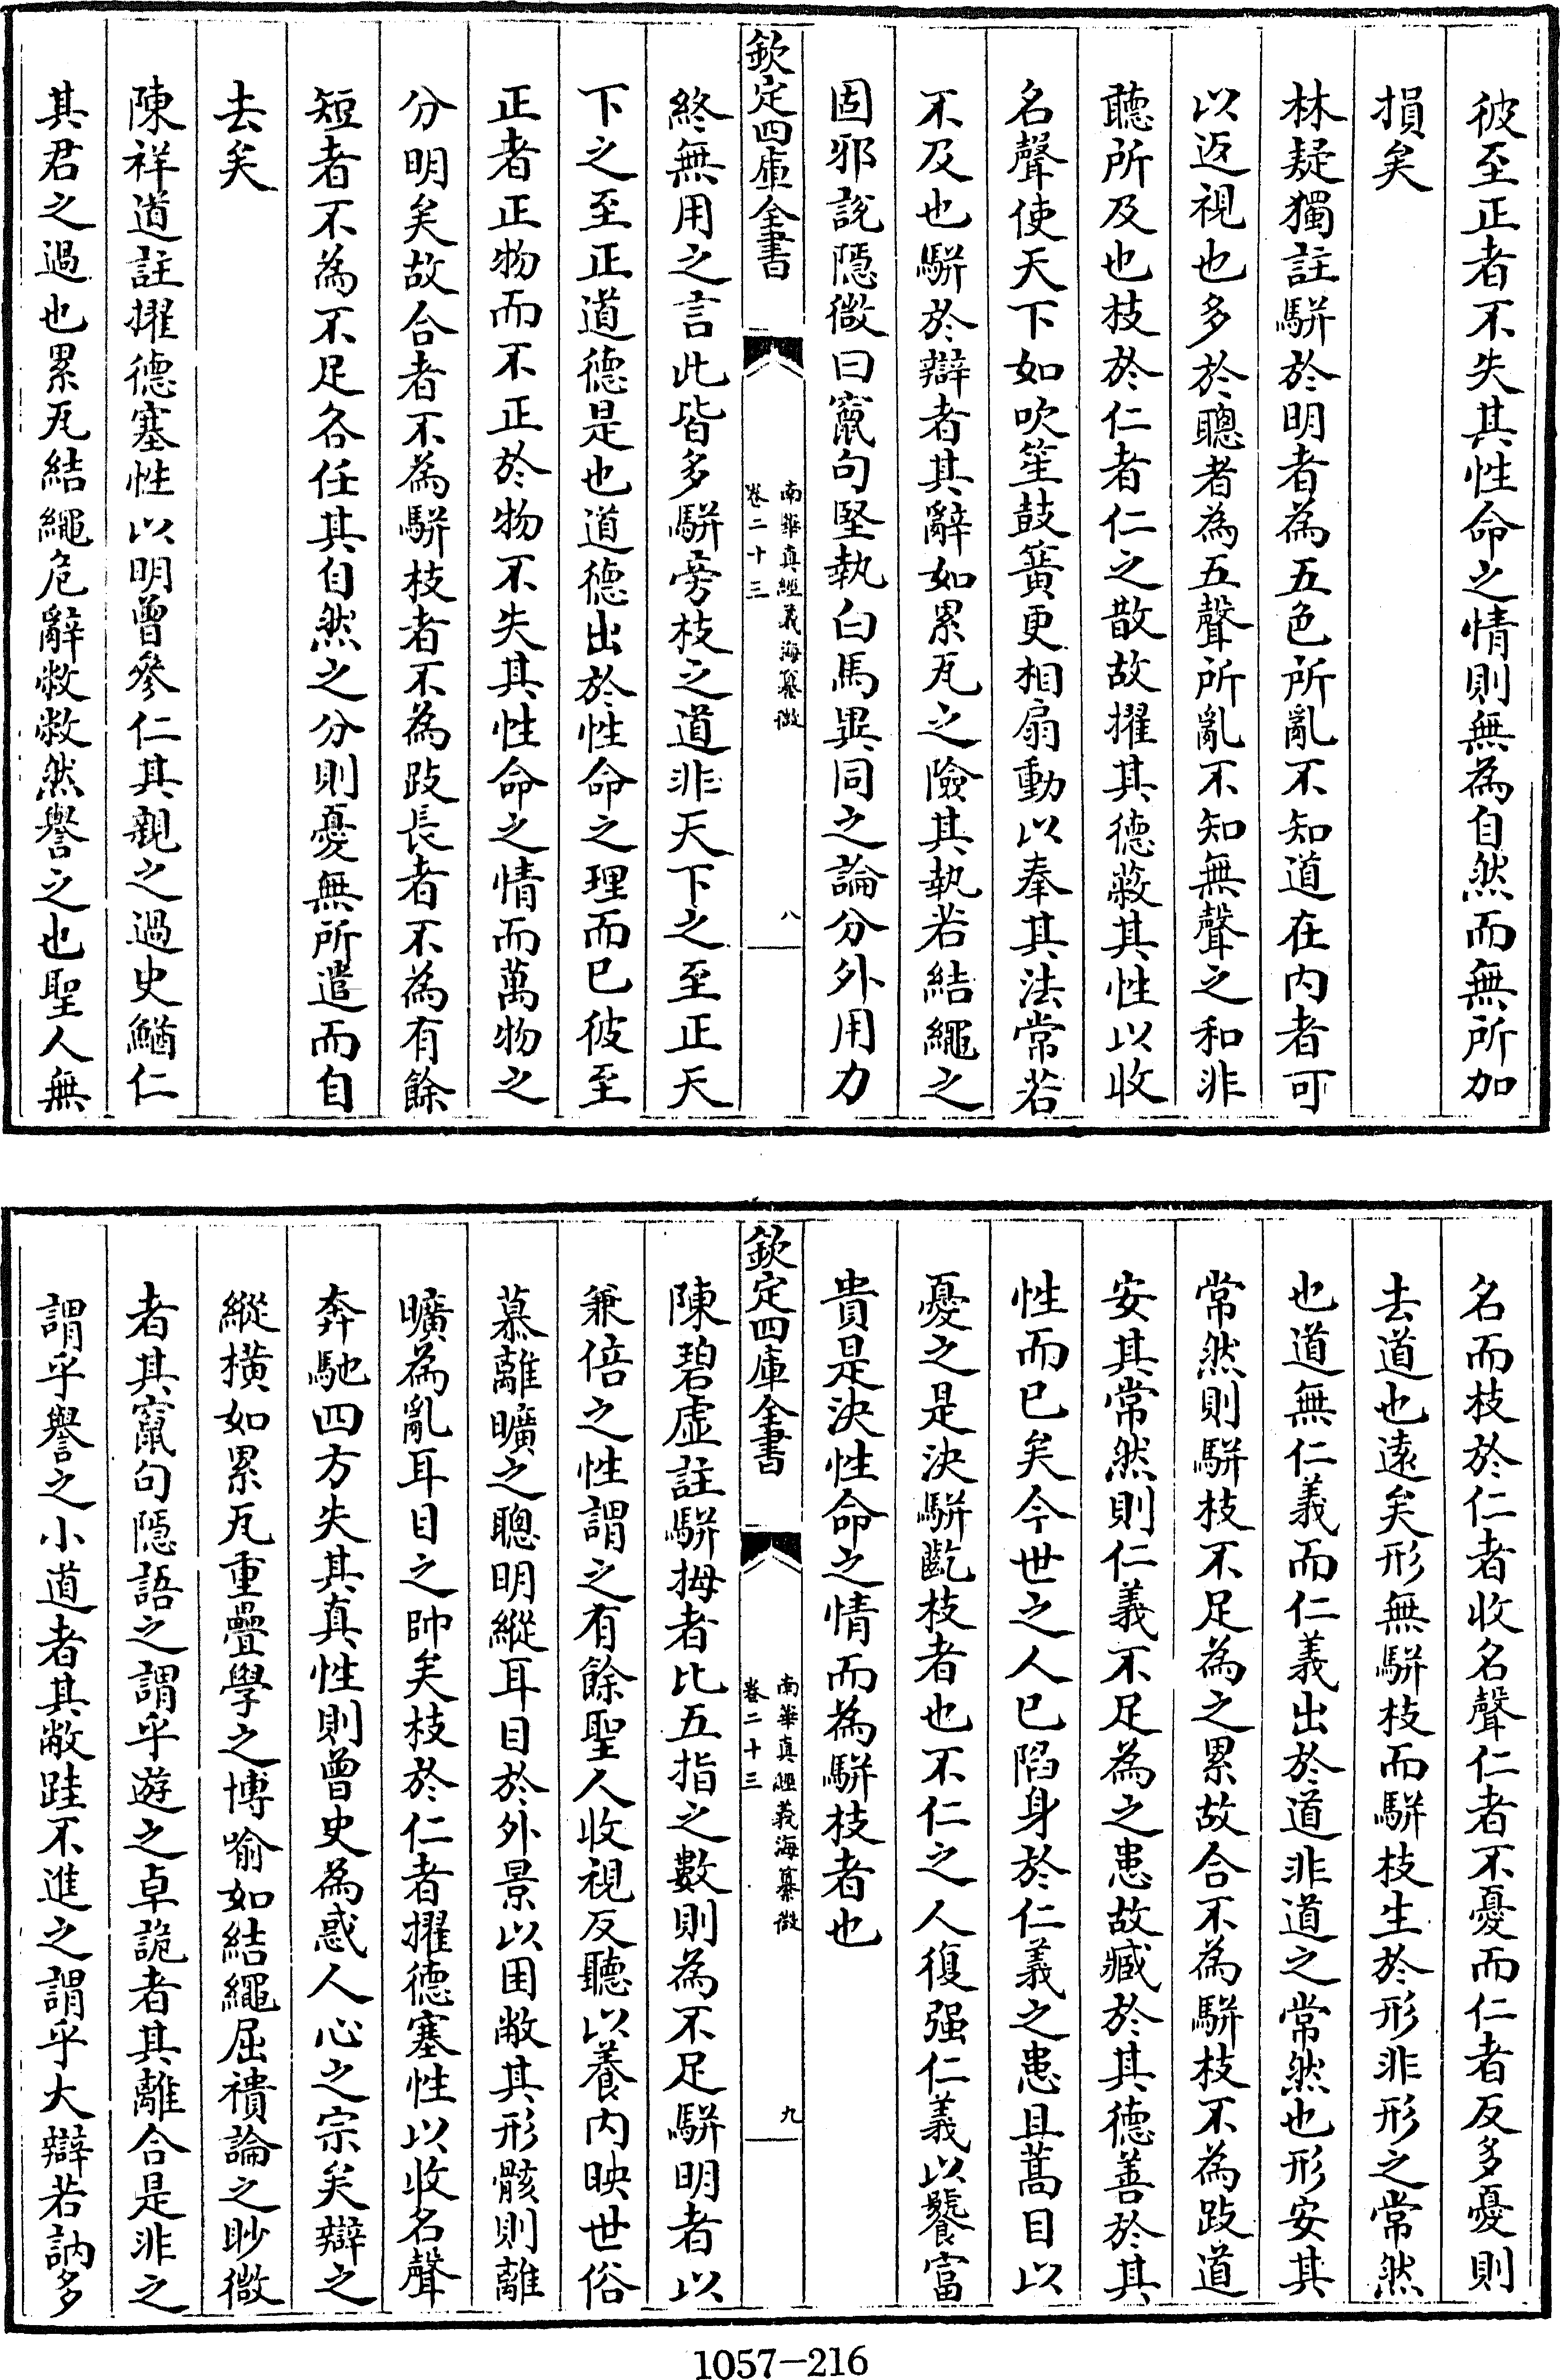 彼至正者不失其性命之情則無為自然而無所加
損矣
林疑獨註駢於明者為五色所亂不知道在内者可
以返視也多於聰者為五聲所亂不知無聲之和非
聽所及也枝於仁者仁之散故擢其德蔽其性以收
名聲使天下如吹笙鼓簧更相扇動以奉其法常若
不及也駢於辯者其辭如累瓦之險其執若結繩之
固邪說隠微曰竄句堅執白馬異同之論分外用力
欽定四庫全書
南華真經義海纂微
卷二十三
八
終無用之言此皆多駢旁枝之道非天下之至正天
下之至正道德是也道德出於性命之理而已彼至
正者正物而不正於物不失其性命之情而萬物之
分明矣故合者不為駢枝者不為跂長者不為有餘
短者不為不足各任其自然之分則憂無所遣而自
去矣
陳祥道註擢德塞性以明曾參仁其親之過史鰌仁
其君之過也累瓦結繩危辭敝敝然譽之也聖人無
名而枝於仁者收名聲仁者不憂而仁者反多憂則
去道也遠矣形無駢枝而駢枝生於形非形之常然
也道無仁義而仁義出於道非道之常然也形安其
常然則駢枝不足為之累故合不為駢枝不為跂道
安其常然則仁義不足為之患故臧於其德善於其
性而已矣今世之人已陷身於仁義之患且蒿目以
憂之是決駢齕枝者也不仁之人復强仁義以饕富
貴是決性命之情而為駢枝者也
欽定四庫全書
南華真經義海纂微
卷二十三
九
陳碧虚註駢拇者比五指之數則為不足駢明者以
兼倍之性謂之有餘聖人收視反聽以養内映世俗
慕離曠之聰明縱耳目於外景以困敝其形骸則離
曠為亂耳目之帥矣枝於仁者擢德塞性以收名聲
奔馳四方失其真性則曾史為惑人心之宗矣辯之
縱橫如累瓦重疊學之博喻如結繩屈襀論之眇微
者其竄句隠語之謂乎遊之卓詭者其離合是非之
謂乎譽之小道者其敝跬不進之謂乎大辯若訥多
1057-216